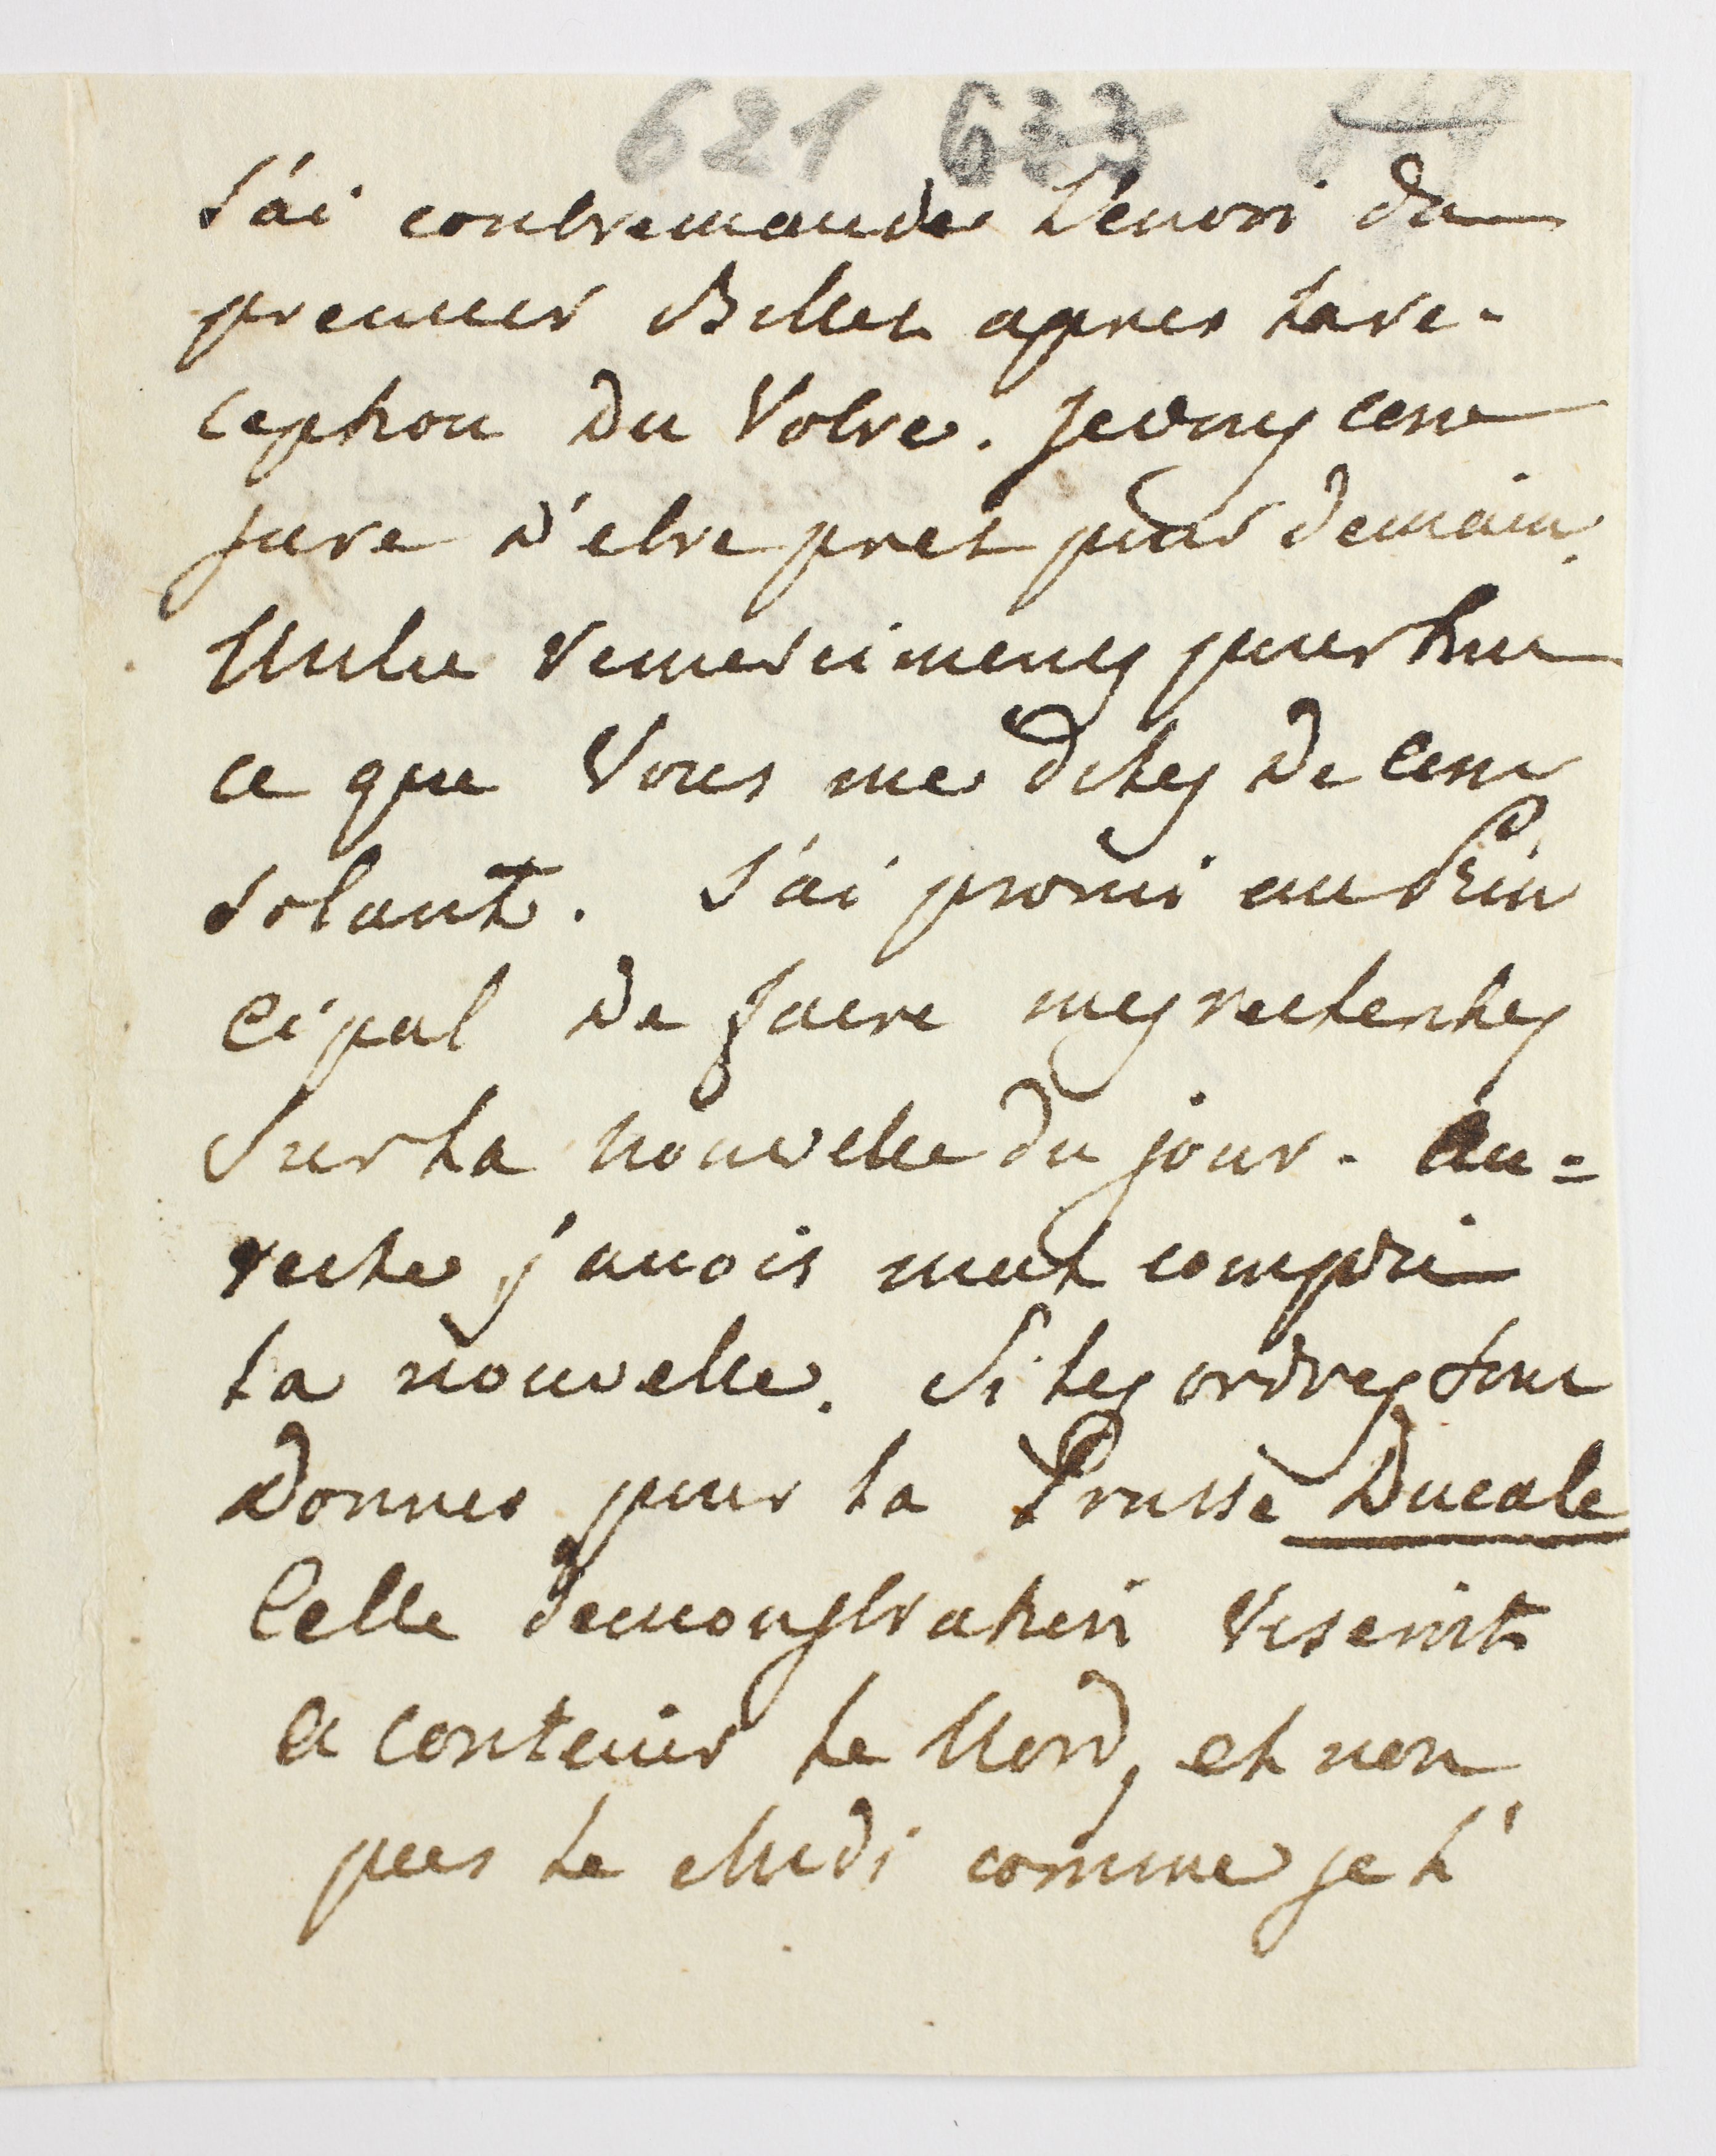 621 633
J'ai contremandé l'envoi du
premier Billet apres la re-
ception du Votre. Je vous con
jure d'etre pret pour demain.
Mille remerciments pour tout
ce que Vous me dites de con
solant. J'ai promi au Prin
cipal de faire mes
Sur la nouvelle du jour. Au=
reste j'avois mal compri
la nouvelle. Si les ordres sont
donnes pour la Prusse Ducale
Celle demonstration viseroit
a contenir le Nord, et non
pas le Midi comme je l'